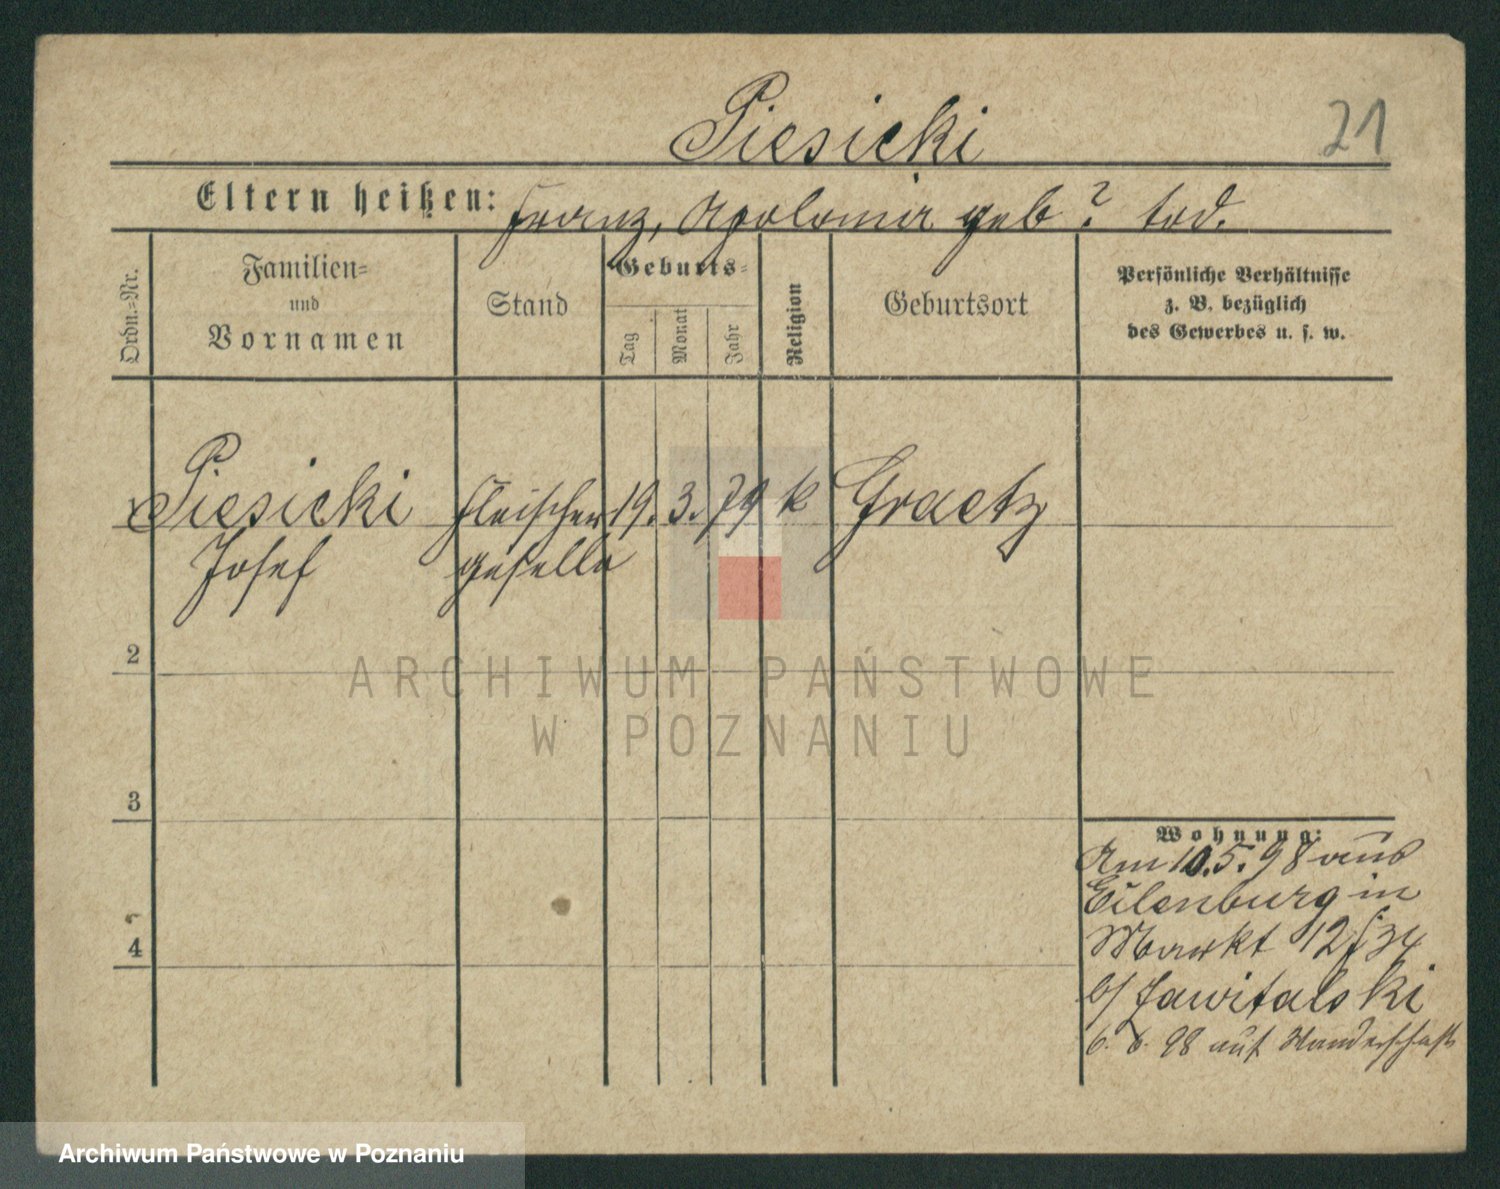 Piesicki 21
Eltern heißen: Franz, Apolonia geb? tod.
Ordn.=Nr. Familien= und Vornamen Stand Geburts= Tag Monat Jahr Religion Geburtsort Persönliche Verhältnisse
z. B. bezüglich
des Gewerbes u. s. w.
Piesicki Fleischer 19. 3. 79 k Graetz
Josef geselle
2
ARCHIWUM PAŃSTWOWE
W POZNANIU
3
Wohnung:
Am 10.5.98 aus
Eilenburg in
4 Markt 12
b/
6. 6. 98 auf Wanderschaft
Archiwum Państwowe w Poznaniu